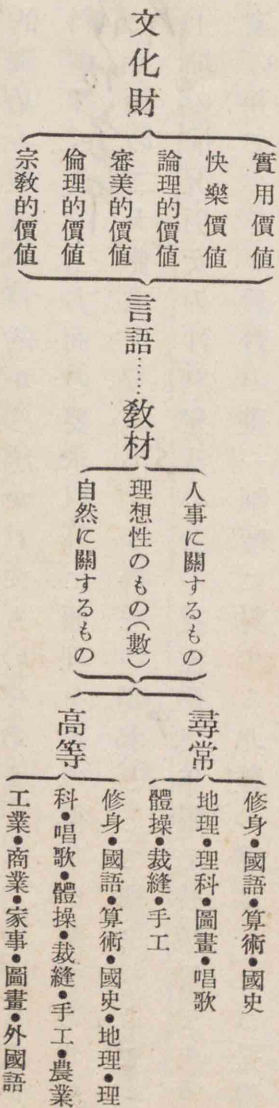 文化財
實用價値
快樂價値
論理的價値
審美的價値
倫理的價値
宗敎的價値
言語……敎材
人事に關するもの
理想性のもの(數)
自然に關するもの
尋常
修身•國語•算術•國史
地理•理科•圖畫•唱歌
體操•裁縫•手工
高等
修身•國語•算術•國史•地理•理
科•唱歌•體操•裁縫•手工•農業
工業•商業•家事•圖畫•外國語